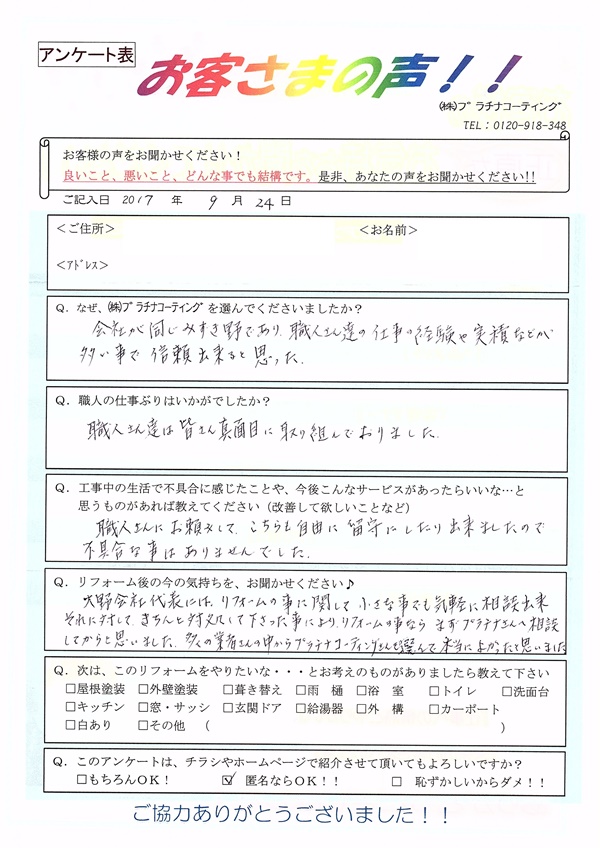 アンケート表
お客さまの声！！
㈱プラチナコーティング
TEL：0120-918-348
お客様の声をお聞かせください！
良いこと、悪いこと、どんな事でも結構です。是非、あなたの声をお聞かせください!!
ご記入日 2017 年 9 月 24 日
＜ご住所＞ ＜お名前＞
＜アドレス＞
Q．なぜ、㈱プラチナコーティングを選んでくださいましたか？
会社が同じみすき野であり、職人さん達の仕事の経験や実積などが
多い事で信頼出来ると思った。
Q．職人の仕事ぶりはいかがでしたか？
職人さん達は皆さん真面目に取り組んでおりました。
Q．工事中の生活で不具合に感じたことや、今後こんなサービスがあったらいいな…と
思うものがあれば教えてください（改善して欲しいことなど）
職人さんにお願いして、こちらも自由に留守にしたり出来ましたので
不具合な事はありませんでした。
Q．リフォーム後の今の気持ちを、お聞かせください♪
大野会社代表には、リフォームの事に関して小さな事でも気軽に相談出来
それに対して、きちんと対処して下さった事により、リフォームの事なら まずプラチナさんへ相談
してからと思いました。多くの業者さんの中からプラチナコーティングさんを選んで本当によかったと思いました
Q．次は、このリフォームをやりたいな・・・とお考えのものがありましたら教えて下さい
□屋根塗装 □外壁塗装 □葺き替え □雨 樋 □浴 室 □トイレ □洗面台
□キッチン □窓・サッシ □玄関ドア □給湯器 □外 構 □カーポート
□白あり □その他 （ ）
Q．このアンケートは、チラシやホームページで紹介させて頂いてもよろしいですか？
□もちろんOK！ ☑ 匿名ならOK！！ □ 恥ずかしいからダメ！！
ご協力ありがとうございました！！